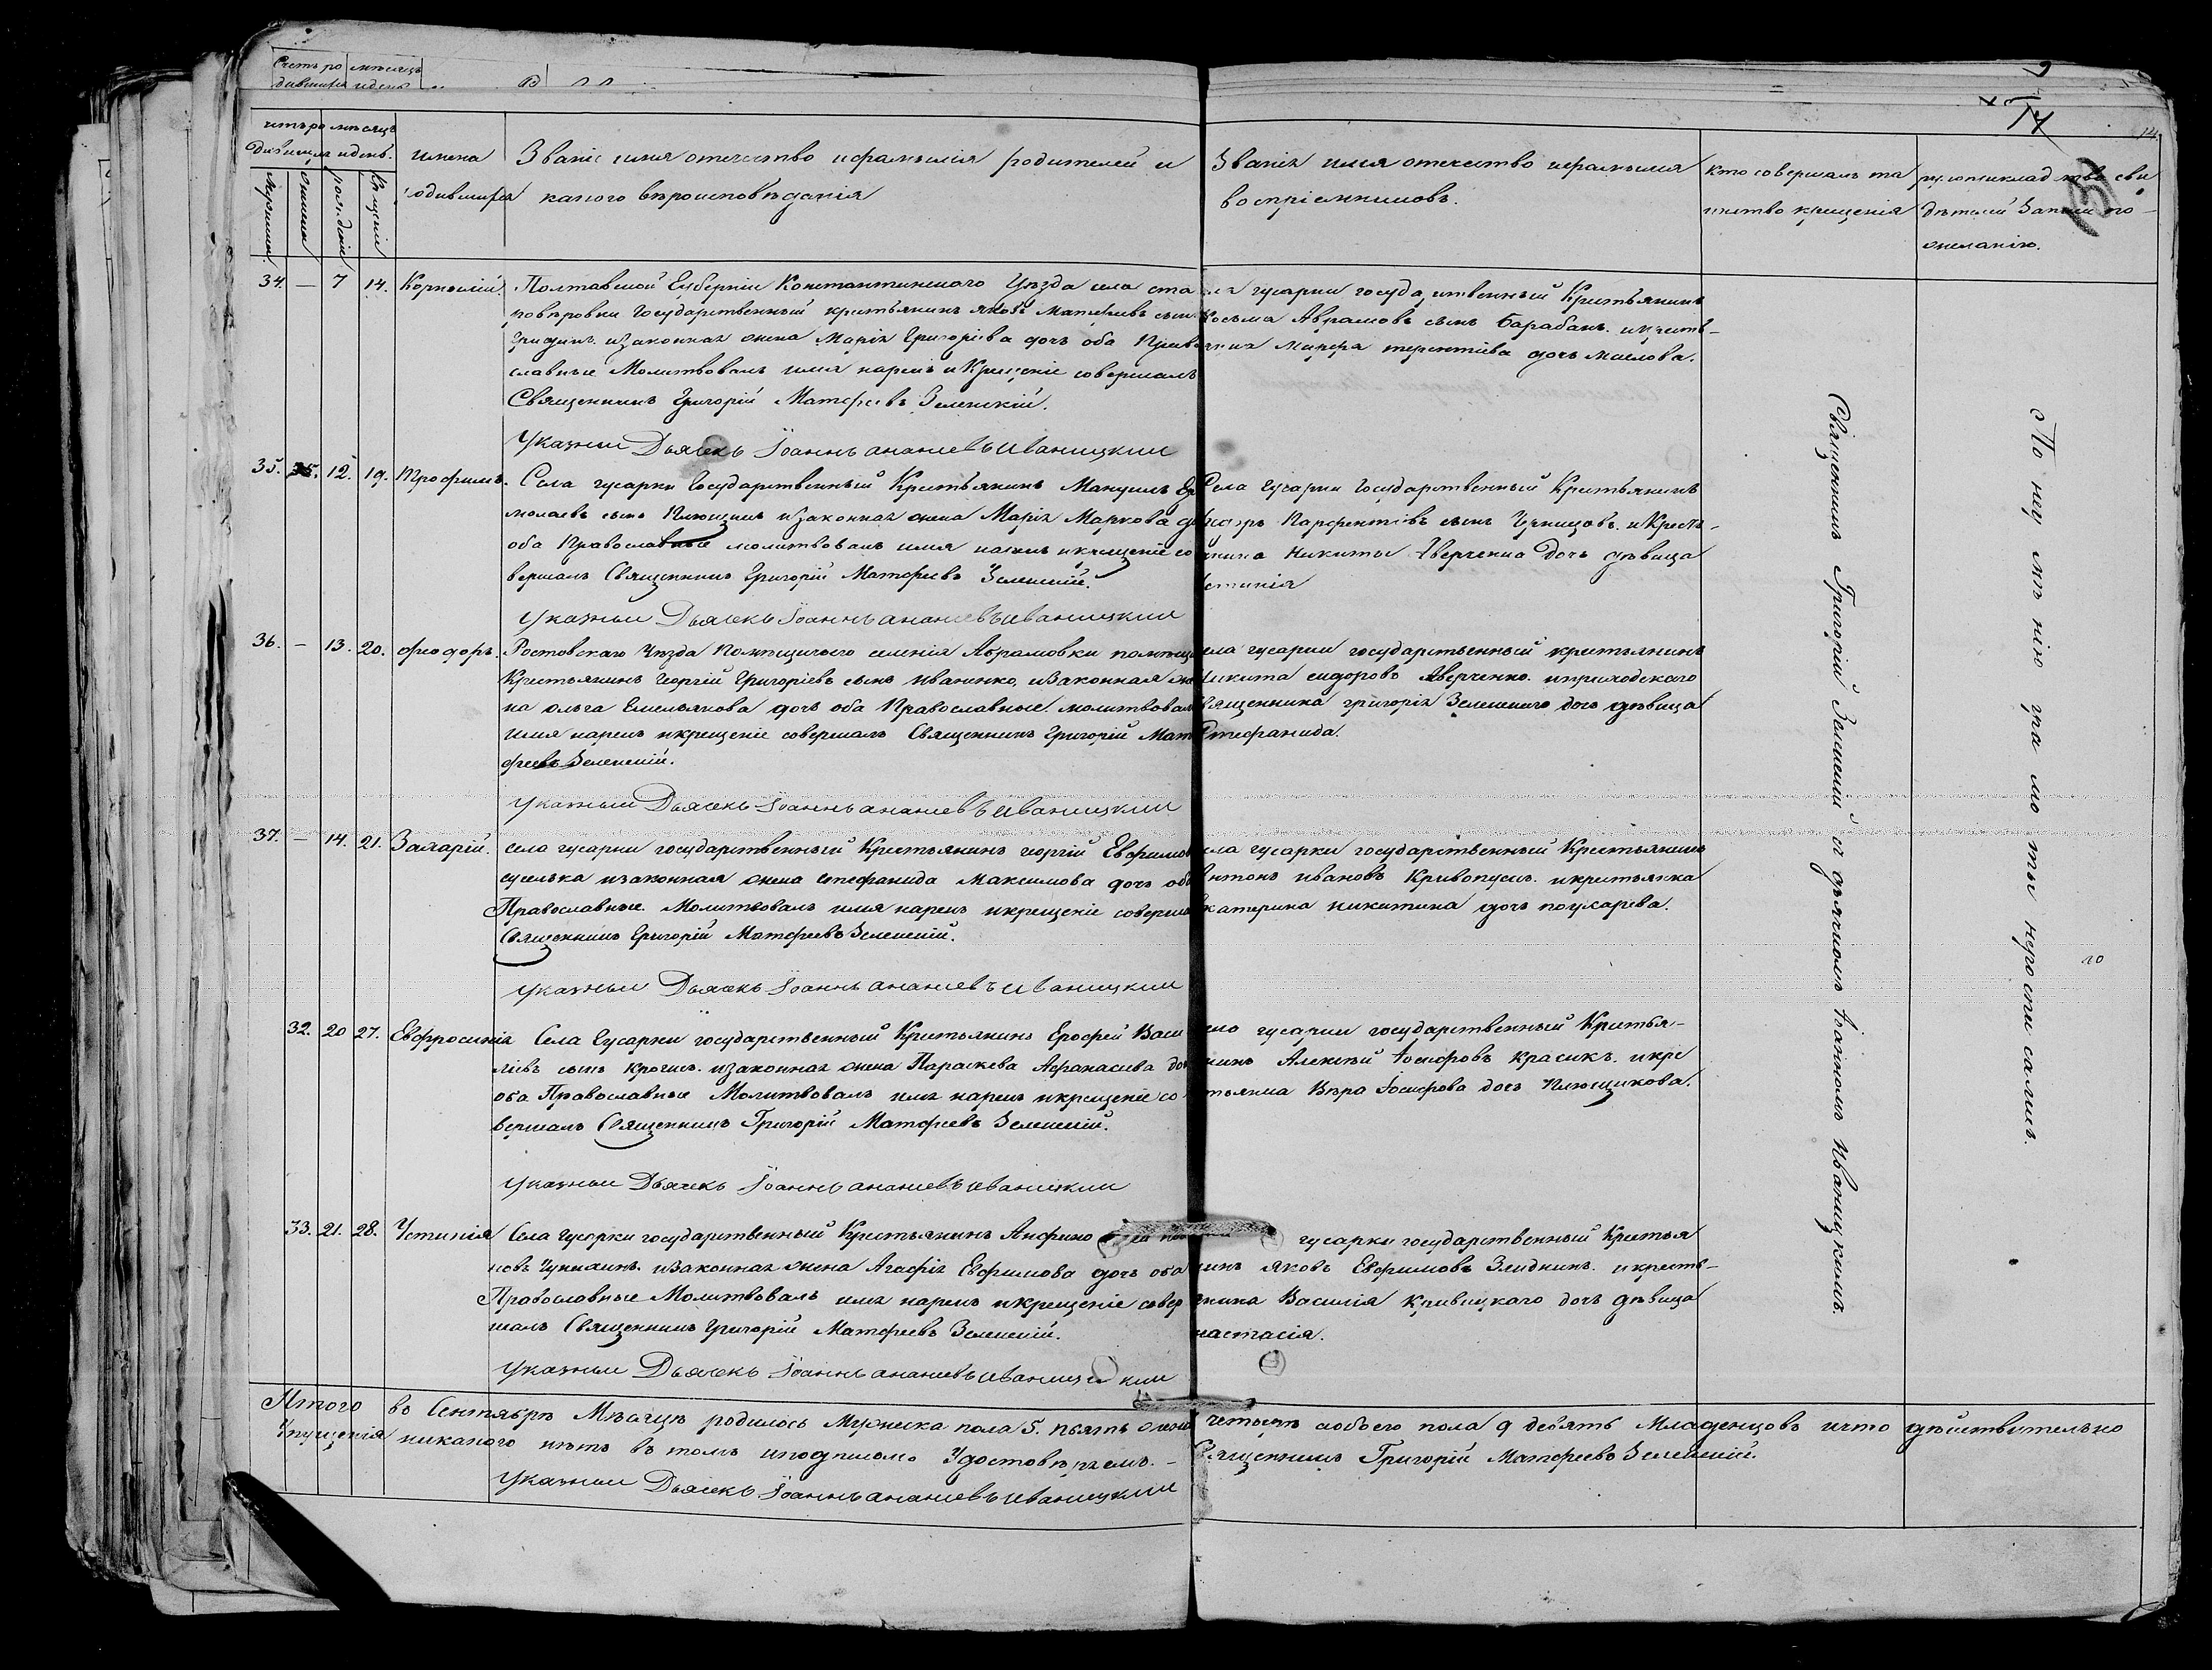 Счетъ ро мѣсяцъ
дившихся и день
четъ ро мѣсяцъ
дившихся и день.
мужеска
женска
рожденія
крещенія
имена
родившихся
Званіе имя отечество и фамилія родителей и
какого вѣроисповѣданія
Званія имя отечество и фамилия
воспріемниковъ.
кто совершалъ та
инство крещенія
рукоприклад тво сви
дѣтелей Записи по
желанію.
14
34. — 7 14. Корнилій. Полтавской Губерніи Константинскаго Уѣзда села ста
ровѣровки Государственный крестьянинъ Яковъ Матфеевъ сынъ
и законная жена Марія Григоріева дочь оба Право
славные Молитвовалъ имя нарекъ и Крещеніе совершалъ
Священникъ Григорій Матфеевъ Зеленскій.
Указныи Дьячекъ Іоаннъ ананиевъ иваницкии
ла гусарки государственный Крестьянинъ
Косьма Аврамовъ сынъ Барабанъ. и кресть-
янка Марфа терентіева дочь маслова.
35. 35. 12. 19. Трофимъ. Села гусарки Государственный Крестьянинъ Мануилъ Ер
молаевъ сынъ Клющикъ и законная жена Марія Маркова до
оба Православные молитвовалъ имя нарекъ и крещеніе со
вершалъ Священникъ Григорій Матфеевъ Зеленскій.
Указныи Дьячекъ Іоаннъ ананиевъ иваницкии
Села гусарки Государственный Крестьянинъ
Парфентіевъ сынъ и Кресть-
янина Никиты Аверченка Дочь дѣвица
стинія
36. — 13. 20. феодоръ. Ростовскаго Уѣзда Помѣщичьего селенія Абрамовки помѣщи
Крестьянинъ георгій Григоріевъ сынъ иваненко, и законная же
на ольга Емельянова дочь оба Православные. молитвовал
имя нарекъ и крещеніе совершалъ Священникъ Григорій Мат
феевъ Зеленскій.
Указныи Дьячекъ Іоаннъ ананиевъ иваницкии
ела гусарки государственный крестьянинъ
Никита сидоровъ Аверченко. и приходскаго
священника григорія Зеленскаго дочь дѣвица
Стефанида.
37. — 14. 21. Захарій. села гусарки государственный Крестьянинъ георгій Евфимов
суселька и законная жена стефанида Максимова дочь об
Православные. Молитвовалъ имя нарекъ и крещеніе соверша
Священникъ Григорій Матфеевъ Зеленскій.
Указныи Дьячекъ Іоаннъ ананиевъ иваницкии
ела гусарки государственный Крестьянинъ
нтонъ ивановъ Кривопускъ. и крестьянка
катерина никитина дочь поухарева.
32. 20 27. Евфросинія Села Гусарки государственный Крестьянинъ Ерофей Васи
ліевъ сынъ и законная жена Параскева Афанасиева до
оба Православные Молитвовалъ имя нарекъ и крещеніе со
вершалъ Священникъ Григорій Матфеевъ Зеленскій.
Указныи Дьячекъ Іоаннъ ананиевъ иваницкии
ело гусарки государственный Крестья-
нинъ Алексѣй Іосифовъ красикъ. и кре
стьянка Вѣра Іосифова дочь Клющикова.
33. 21. 28. Устинія Села Гусарки государственный Крестьянинъ
новъ и законная жена Агафія Евфимова дочь оба
Православные Молитвовалъ имя нарекъ и крещеніе совер
шалъ Священникъ Григорій Матфеевъ Зеленскій.
Указныи Дьячекъ Іоаннъ ананиевъ иваницкии
гусарки государственный Крестья
нинъ яковъ Евфимовъ Злиднинъ. и кресть-
янина Василія кривицкаго дочь дѣвица
настасія.
Священникъ Григорій Зеленскій съ дьячкомъ Іоанномъ Иваницкимъ.
По неу мѣ нію гра мо ты неро спи салиъ.
Итого въ Сентябрѣ Мѣсяцѣ родилось Мужеска пола 5. пять женс четыре а обоего пола 9 девять Младенцовъ и что дѣйствительно
упущенія никакого нѣтъ въ томъ и подписомъ Удостовѣряемъ.— Священникъ Григорій Матфеевъ Зеленскій.
Указныи Дьячекъ Іоаннъ ананиевъ иваницкии